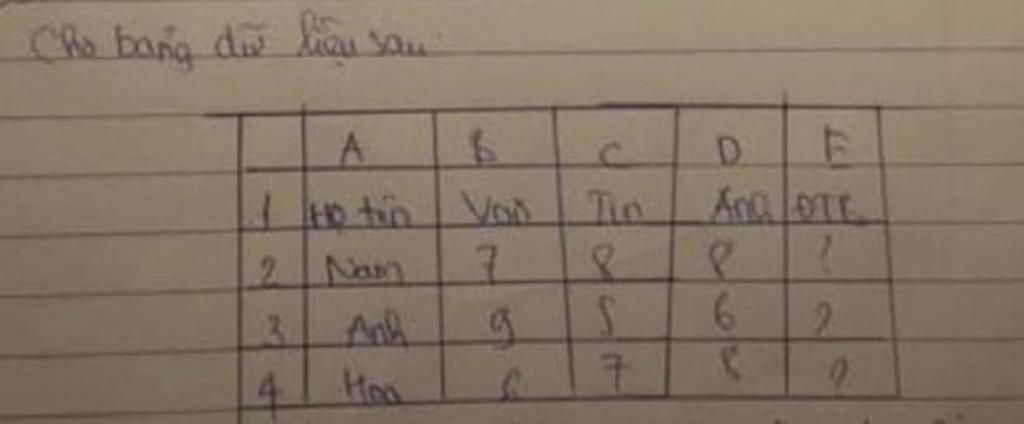 Cho bảng dữ liệu sau:
A B C D E
1 Họ tên Văn Tin Anh ĐTB
2 Nam 7 8 8 ?
3 Anh 9 5 6 ?
4 Hoa 6 7 8 ?